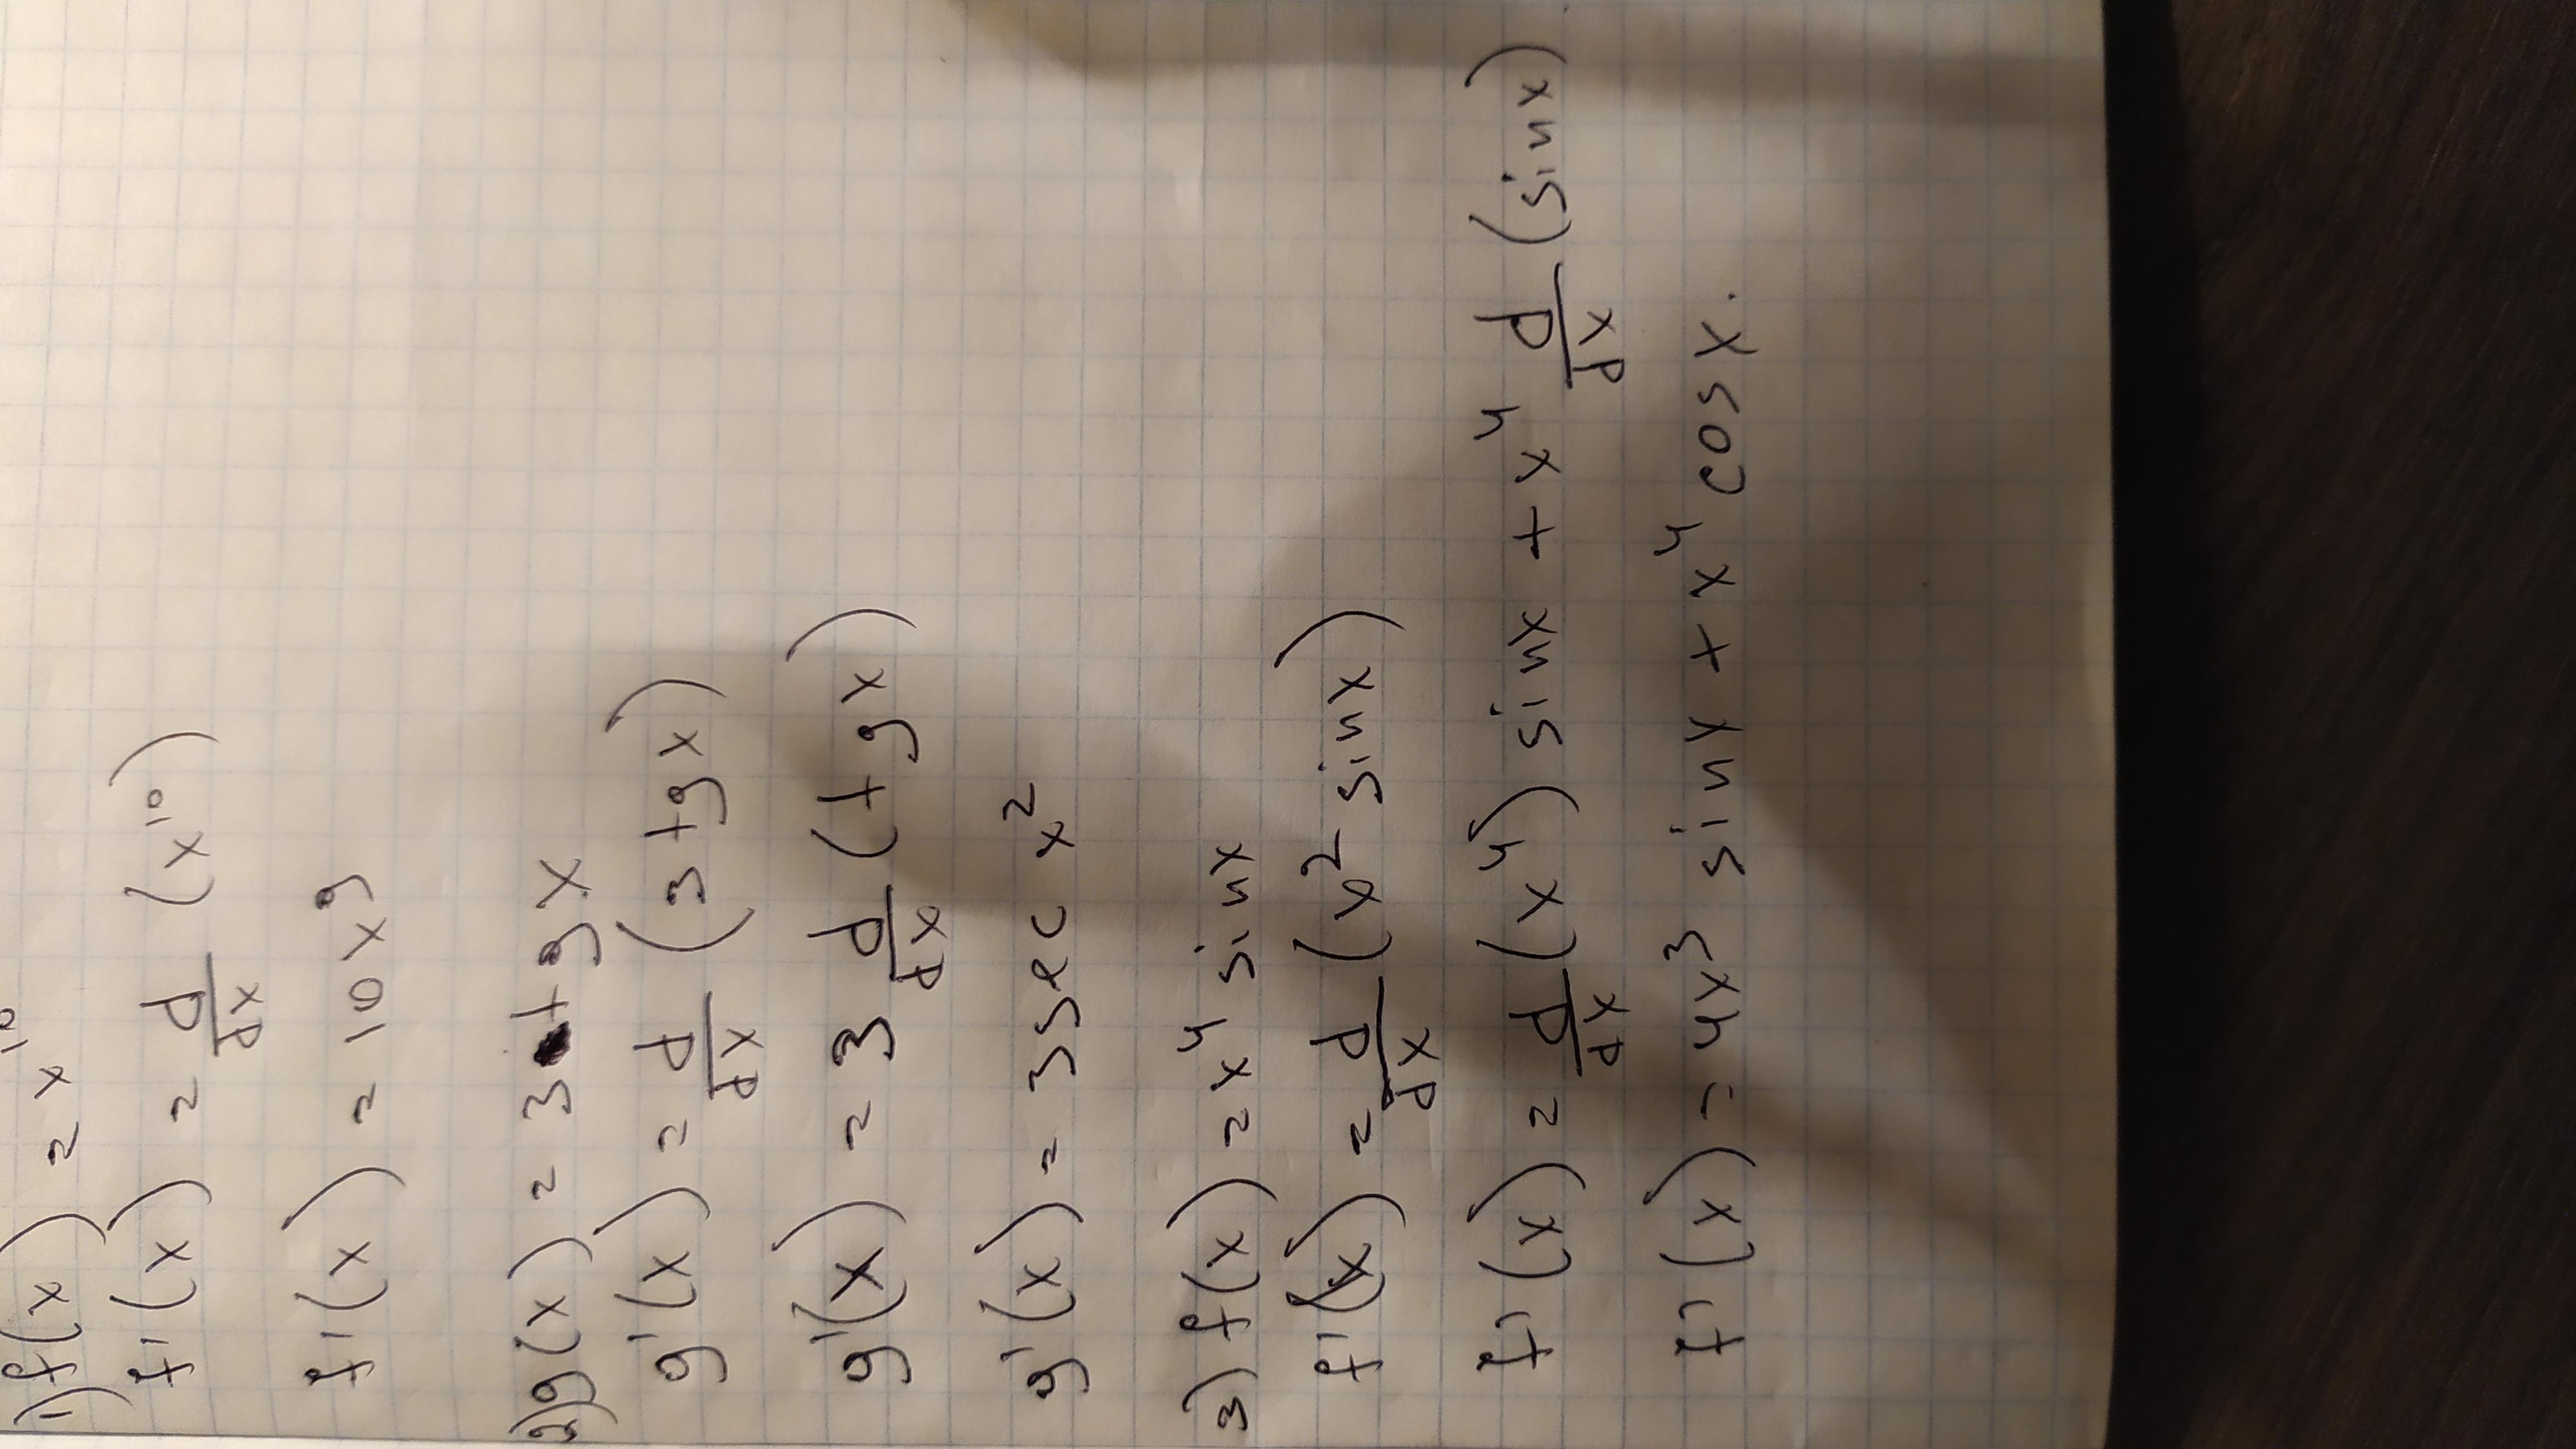 1) f(x) = x^10
f'(x) = d/dx (x^10)
f'(x) = 10x^9
2) g(x) = 3 tg x
g'(x) = d/dx (3 tg x)
g'(x) = 3 d/dx (tg x)
g'(x) = 3 sec x^2
3) f(x) = x^4 sin x
f'(x) = d/dx (x^2 sin x)
f'(x) = d/dx (x^4) sin x + x^4 d/dx (sin x)
f'(x) = 4x^3 sin x + x^4 cos x.